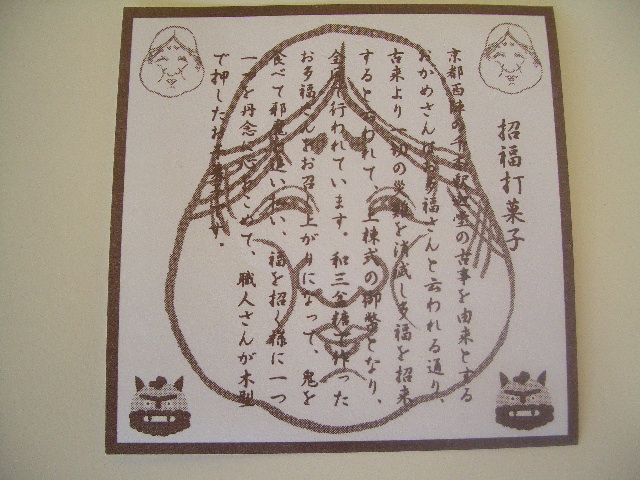 招福打菓子
京都西陣の千本釈迦堂の昔事を由来とする
おかめさんはお多福さんと云われる通り、
古来より一切の災難を消滅し多福を招来
すると云われて、上棟式の御幣となり、
全国で行われています。和三盆糖で作った
お多福さんをお召し上がりになって、鬼を
食べて邪鬼を追い払い、福を招く様に一つ
一つを丹念に心をこめて、職人さんが木型
で押したお菓子です。